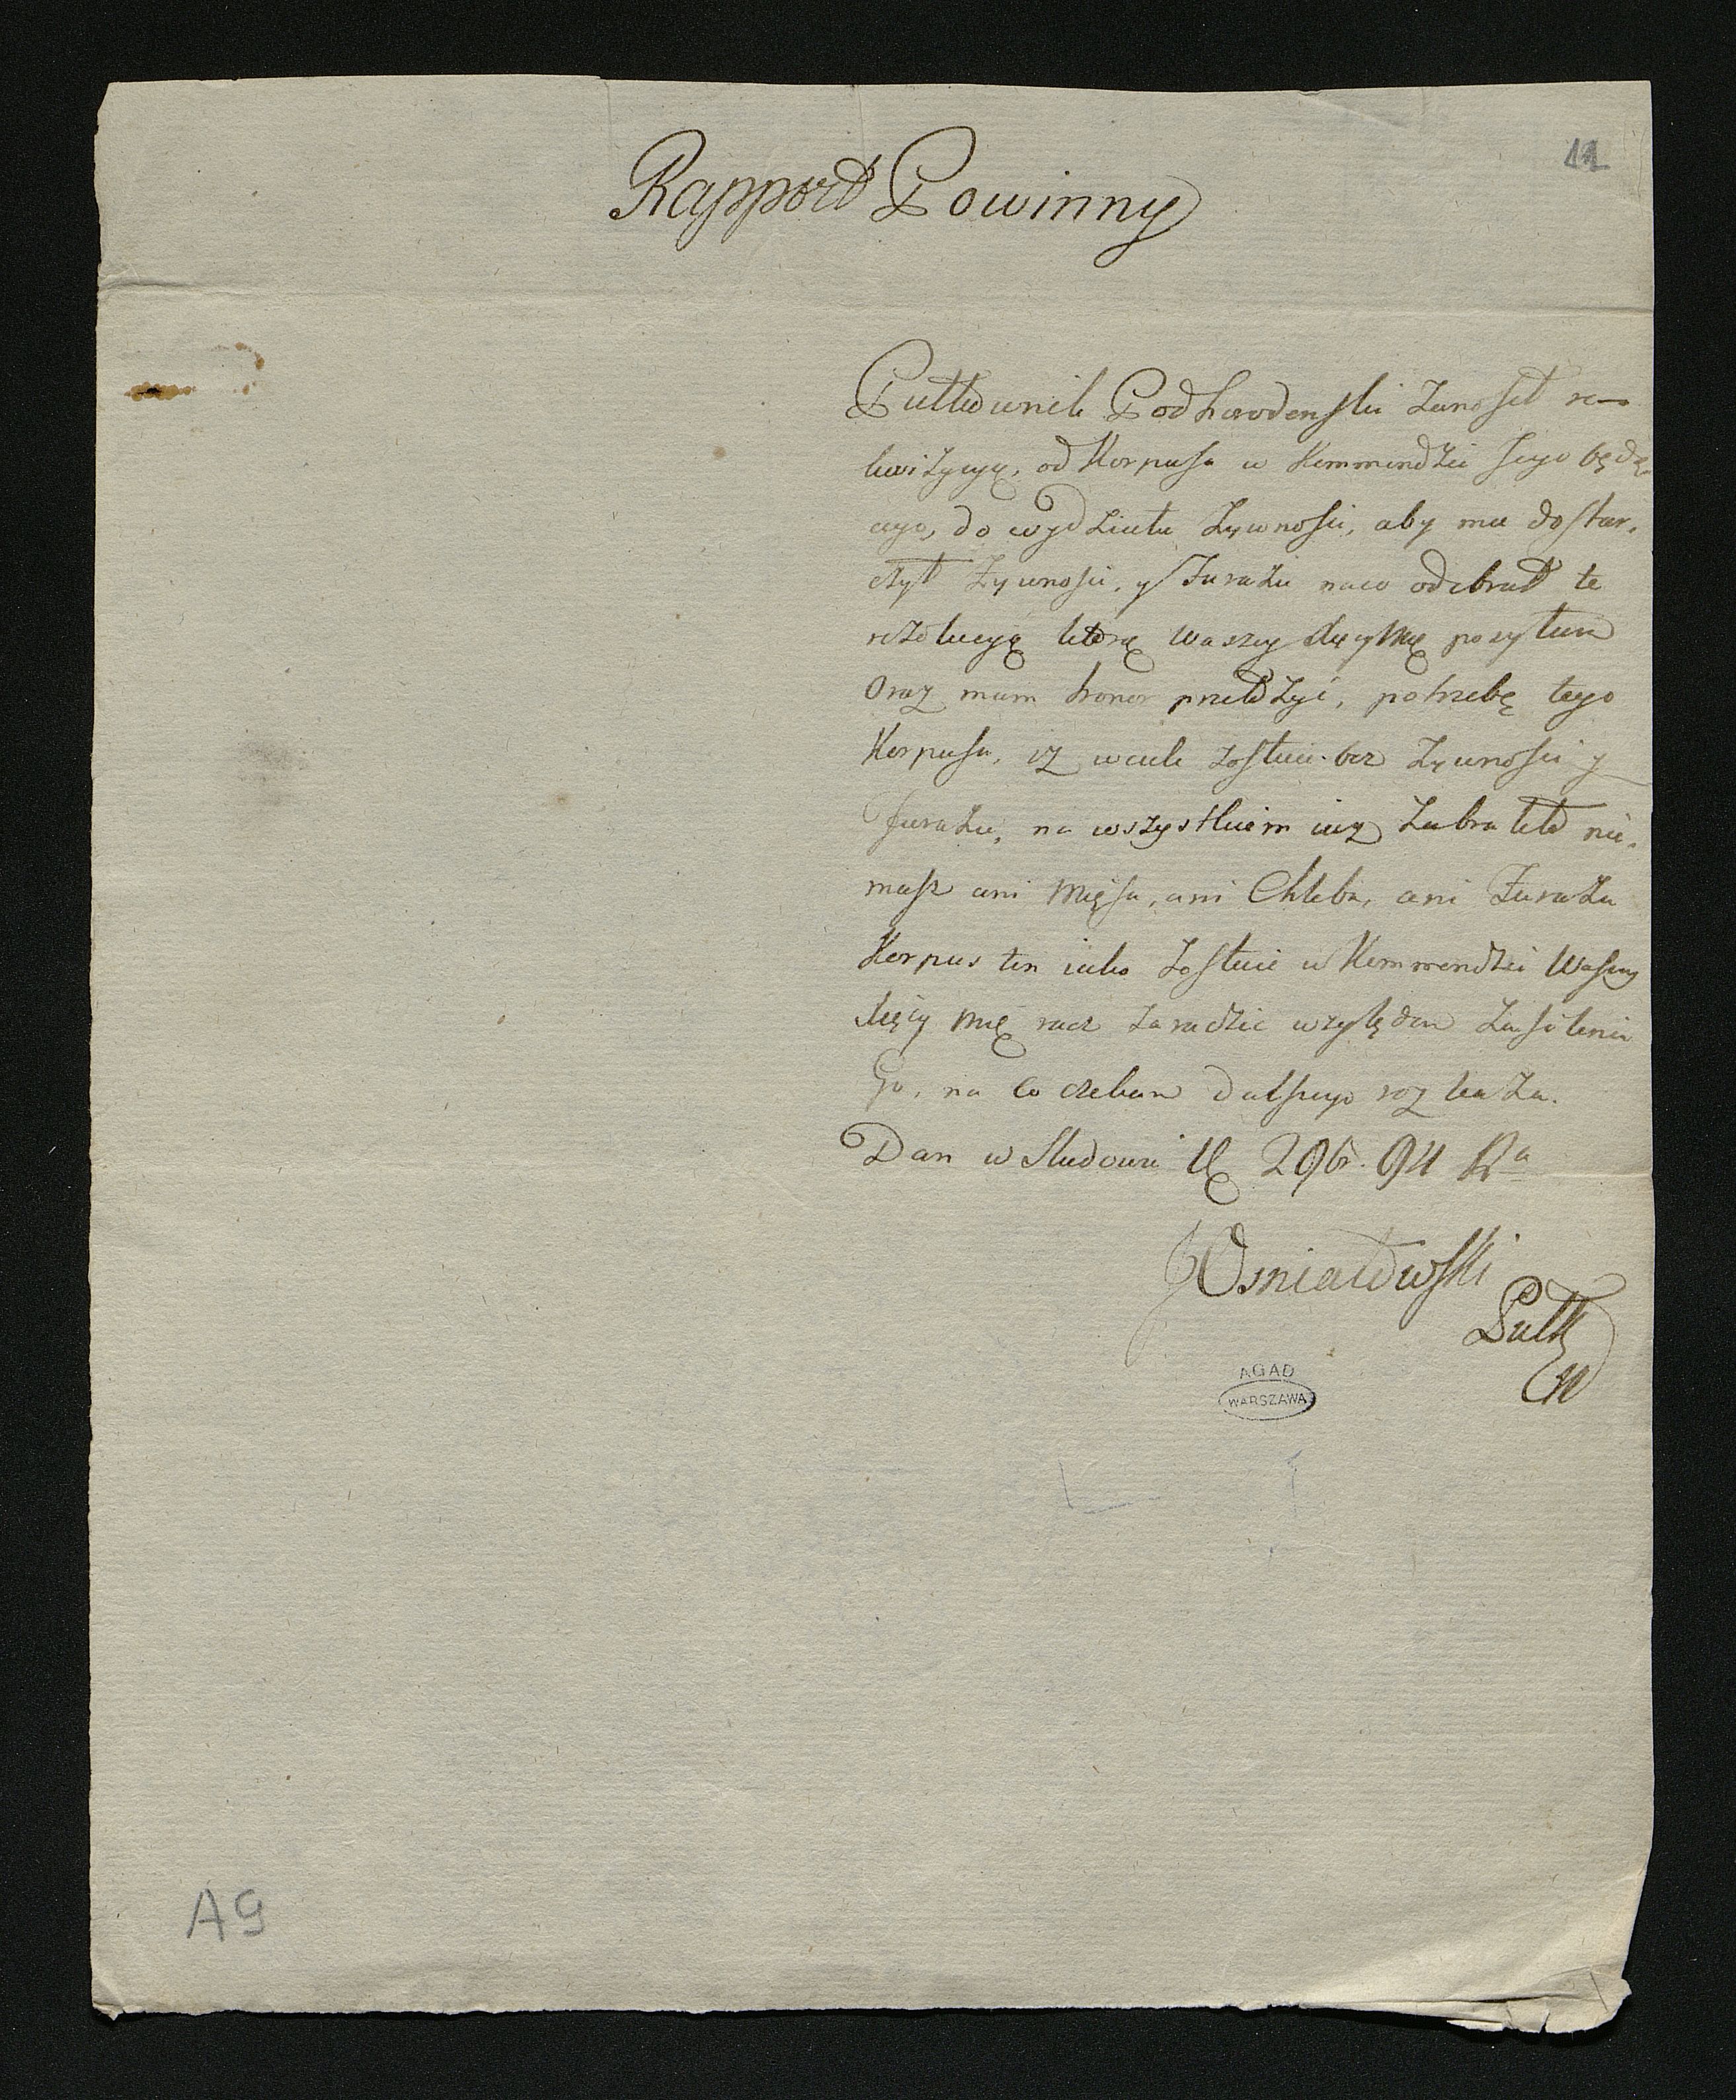 11
Rapport Powinny
Pułkownik Podhorodenski zanosił re-
kwizycyę, od Korpusu w Kommendzie Jego będą-
cego, do wydziału Żywnosci, aby mu dostar-
czył Żywnosci, y Furażu na co odebrał te
rezolucyę którę waszey posyłam
Oraz mam honor przełożyć, potrzebę tego
Korpusu, iż wcale zostaie bez Żywnosci y
furażu, na wszystkiem iuz zabrakło nie-
masz ani Mięsa, ani Chleba, ani Furażu
Korpus ten iako zostaie w Kommendzie Waszey
racz zaradzic względem zasilenia
Go, na co czekam dalszego rozkazu.
Dan w 29br. 94 Ra
Osniałowski
Pułk
AGAD
WARSZAWA
A9